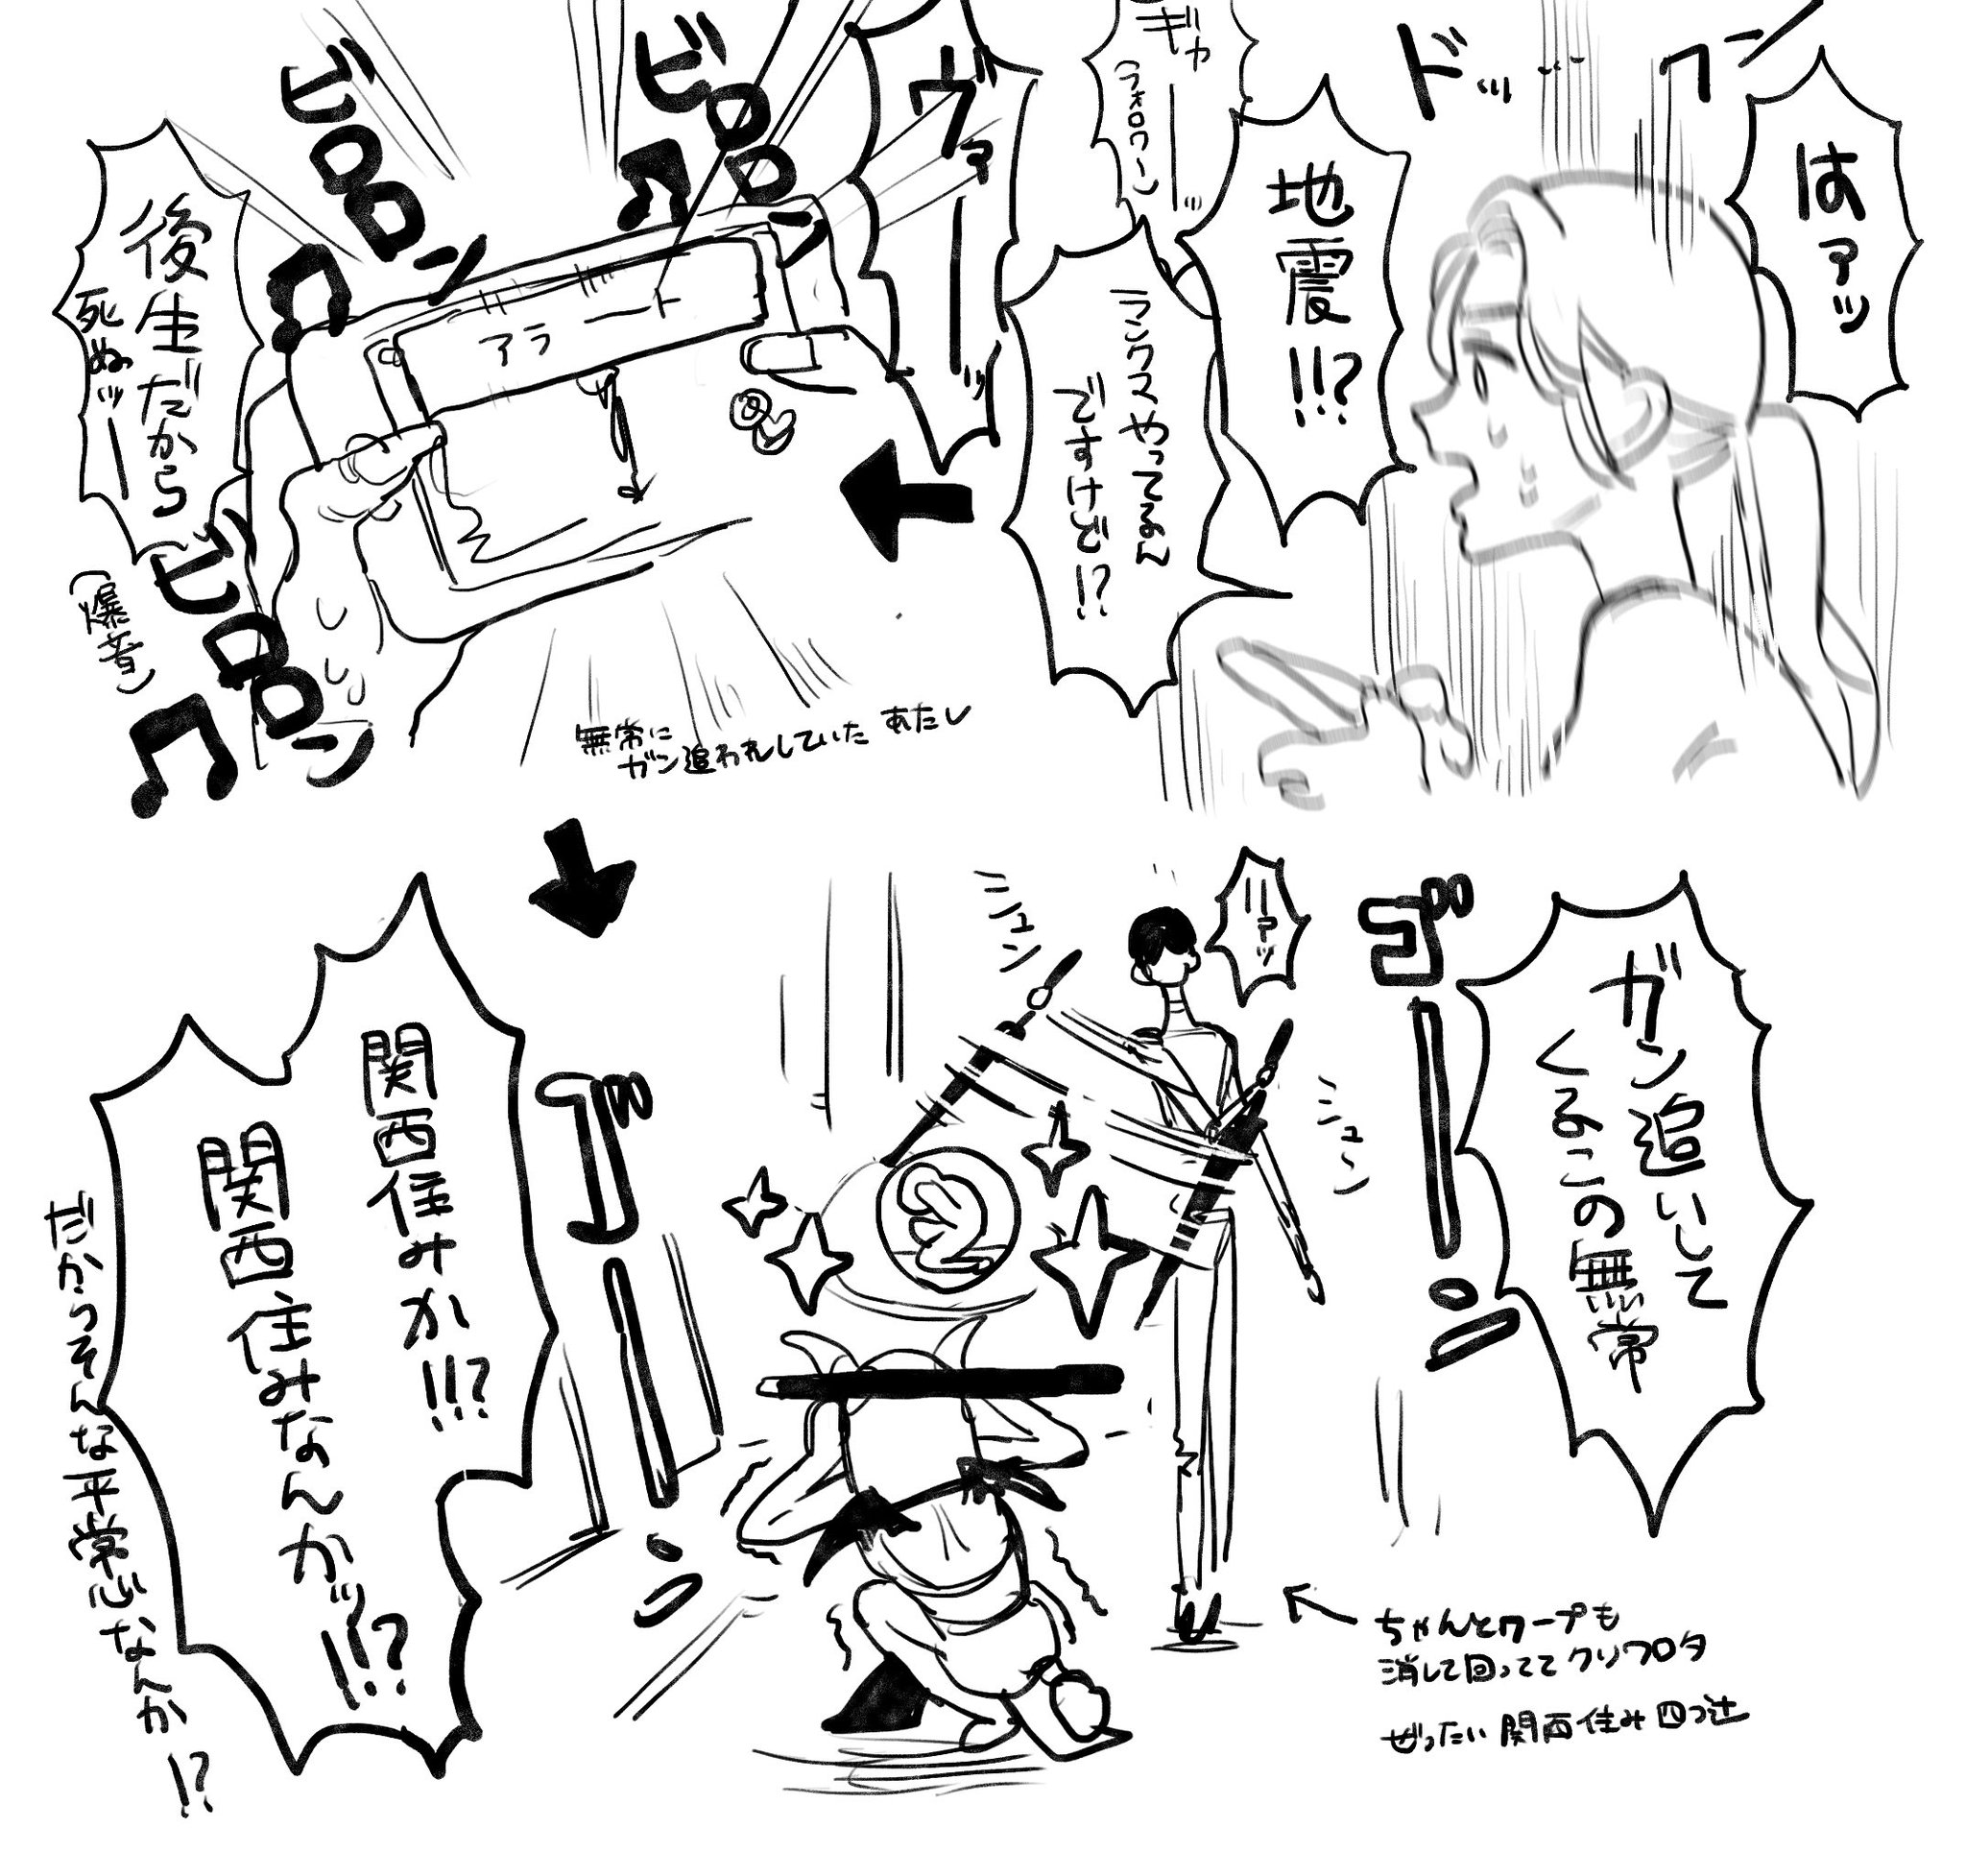 はァッ
ドックン
地震!!?
ギャーッ
(フォロワー)
ランクマやってるん
ですけど!?
ヴァーッ
ビロロン♫
ビロロン♫
アラート
後生だから
死ぬッー
(爆音)
ビロロン♫
無常に
ガン追われしていた あたし
ガン追いして
くるこの無常
ゴーン
ニュン
ニュ〜ン
ちゃんとワープも
消して回ってて クソワロタ
ぜったい 関西住み 四つ辻
ゴーン
関西住みか!!?
関西住みなんかッ!!?
だからそんな平常心なんか!?